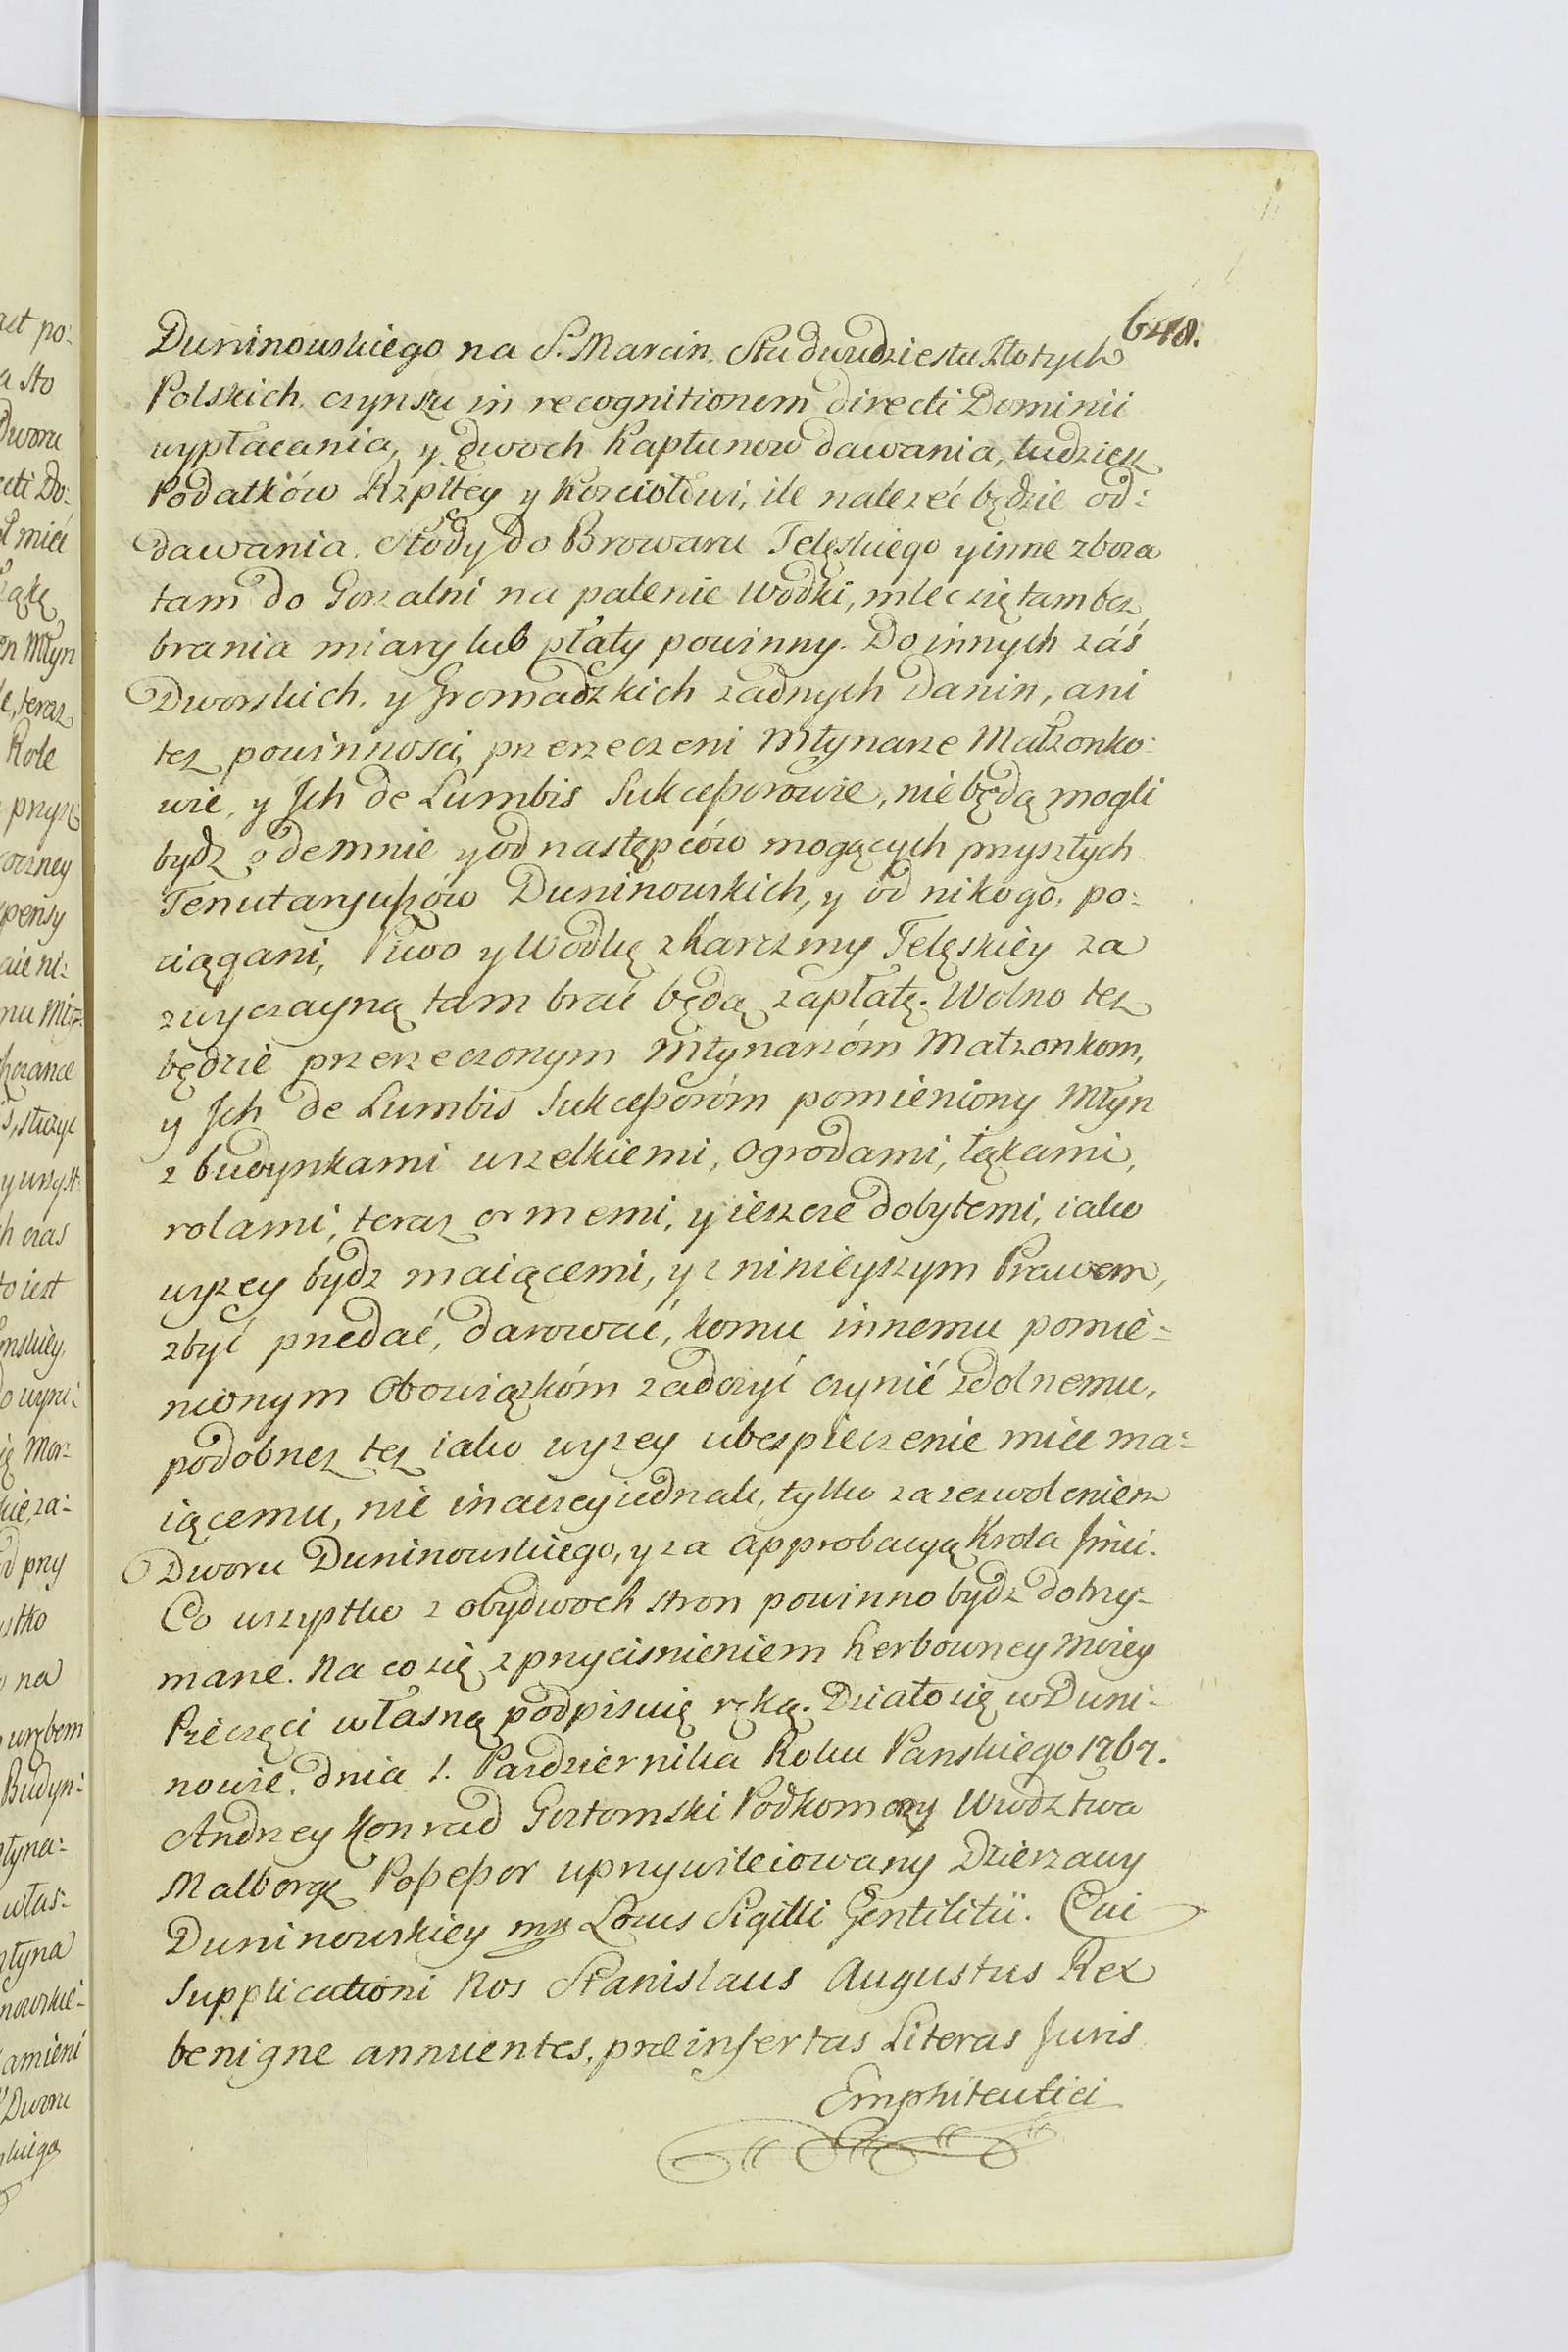 648.
Duninowskiego na S. Marcin. Studwudziestu Złotych
Polskich. czynszu in recognitionem directi Dominii
wypłacania, y dwoch Kapłunow dawania, tudziesz
Podatków Rzpltey y Kosciołowi, ile nalezeć będzie od=
dawania. Słody do Browaru Telęskiego y inne zboza
tam do Gorzalni na palenie Wodki, mlec się tam bez
brania miary lub płaty powinny. Do innych záś
Dworskich. y Gromadzkich zadnych Danin, ani
tez powinnosci, przerzeczeni Młynarze Małzonko=
wie, y Jch de Lumbis Sukcessorowie, nie będą mogli
bydz odemnie y od następców mogących przyszłych
Tenutaryuszów Duninowskich, y od nikogo, po=
ciągani, Piwo y Wodkę z Karczmy Telęskiey za
zwyczayną tam brać będą zapłatę. Wolno tez
będzie przerzeczonym Młynarzóm Małzonkom,
y Jch de Lumbis Sukcessoróm pomieniony Młyn
z budynkami wszelkiemi, Ogrodami, łąkami,
rolami, teraz ornemi, y ieszcze dobytemi, iako
wyzey bydz maiącemi, y z ninieyszym Prawem,
zbyć przedać, darować, komu innemu pomie=
nionym Obowiązkóm zadosyć czynić zdolnemu,
podobnez tez iako wyzey ubezpieczenie miec ma=
iącemu, nie inaczey iednak, tylko za zezwoleniem
Dworu Duninowskiego, y za approbacyą Krola Jmci.
Co wszystko z obydwoch stron powinno bydz dotrzy=
mane. Na co się z przycisnieniem herbowney Moiey
Pieczęci własną podpisuię ręką. Działo się w Duni=
nowie. dnia 1. Pazdziernika Roku Panskiego 1767.
Andrzey Konrad Goztomski Podkomorzy Wwdztwa
Malborgo Possessor uprzywileiowany Dzierzawy
Duninowskiey mp Locus Sigilli Gentilitii. Cui
Supplicationi Nos Stanislaus Augustus Rex
benigne annuentes, præinsertas Literas Juris
Emphiteutici